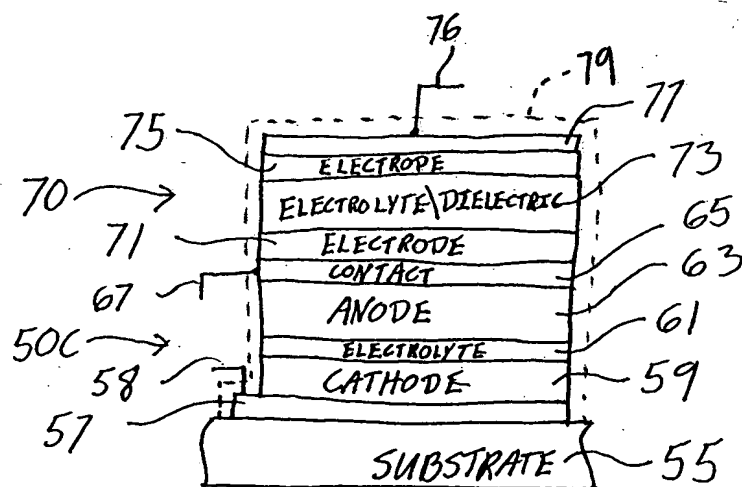 76
79
77
75 ELECTRODE
70 ELECTROLYTE\DIELECTRIC 73
71 ELECTRODE 65
CONTACT 63
67 ANODE 61
50C ELECTROLYTE
58 CATHODE 59
57
SUBSTRATE 55